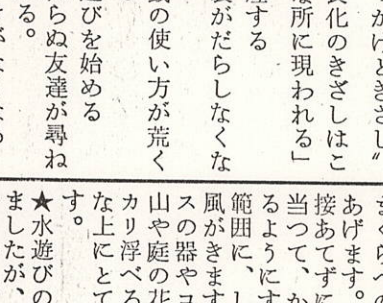 かけときざし〟
化のきざしはこ
な所に現われる」
する
がだらしなくな
の使い方が荒く
びを始める
らぬ友達が尋ね
る。
あげます。
接あてずに
当つて、か
るようにす
範囲に、し
風がきます
スの器やコ
山や庭の花
カリ浮べる
な上にとて
す。
★水遊びの
ましたが、